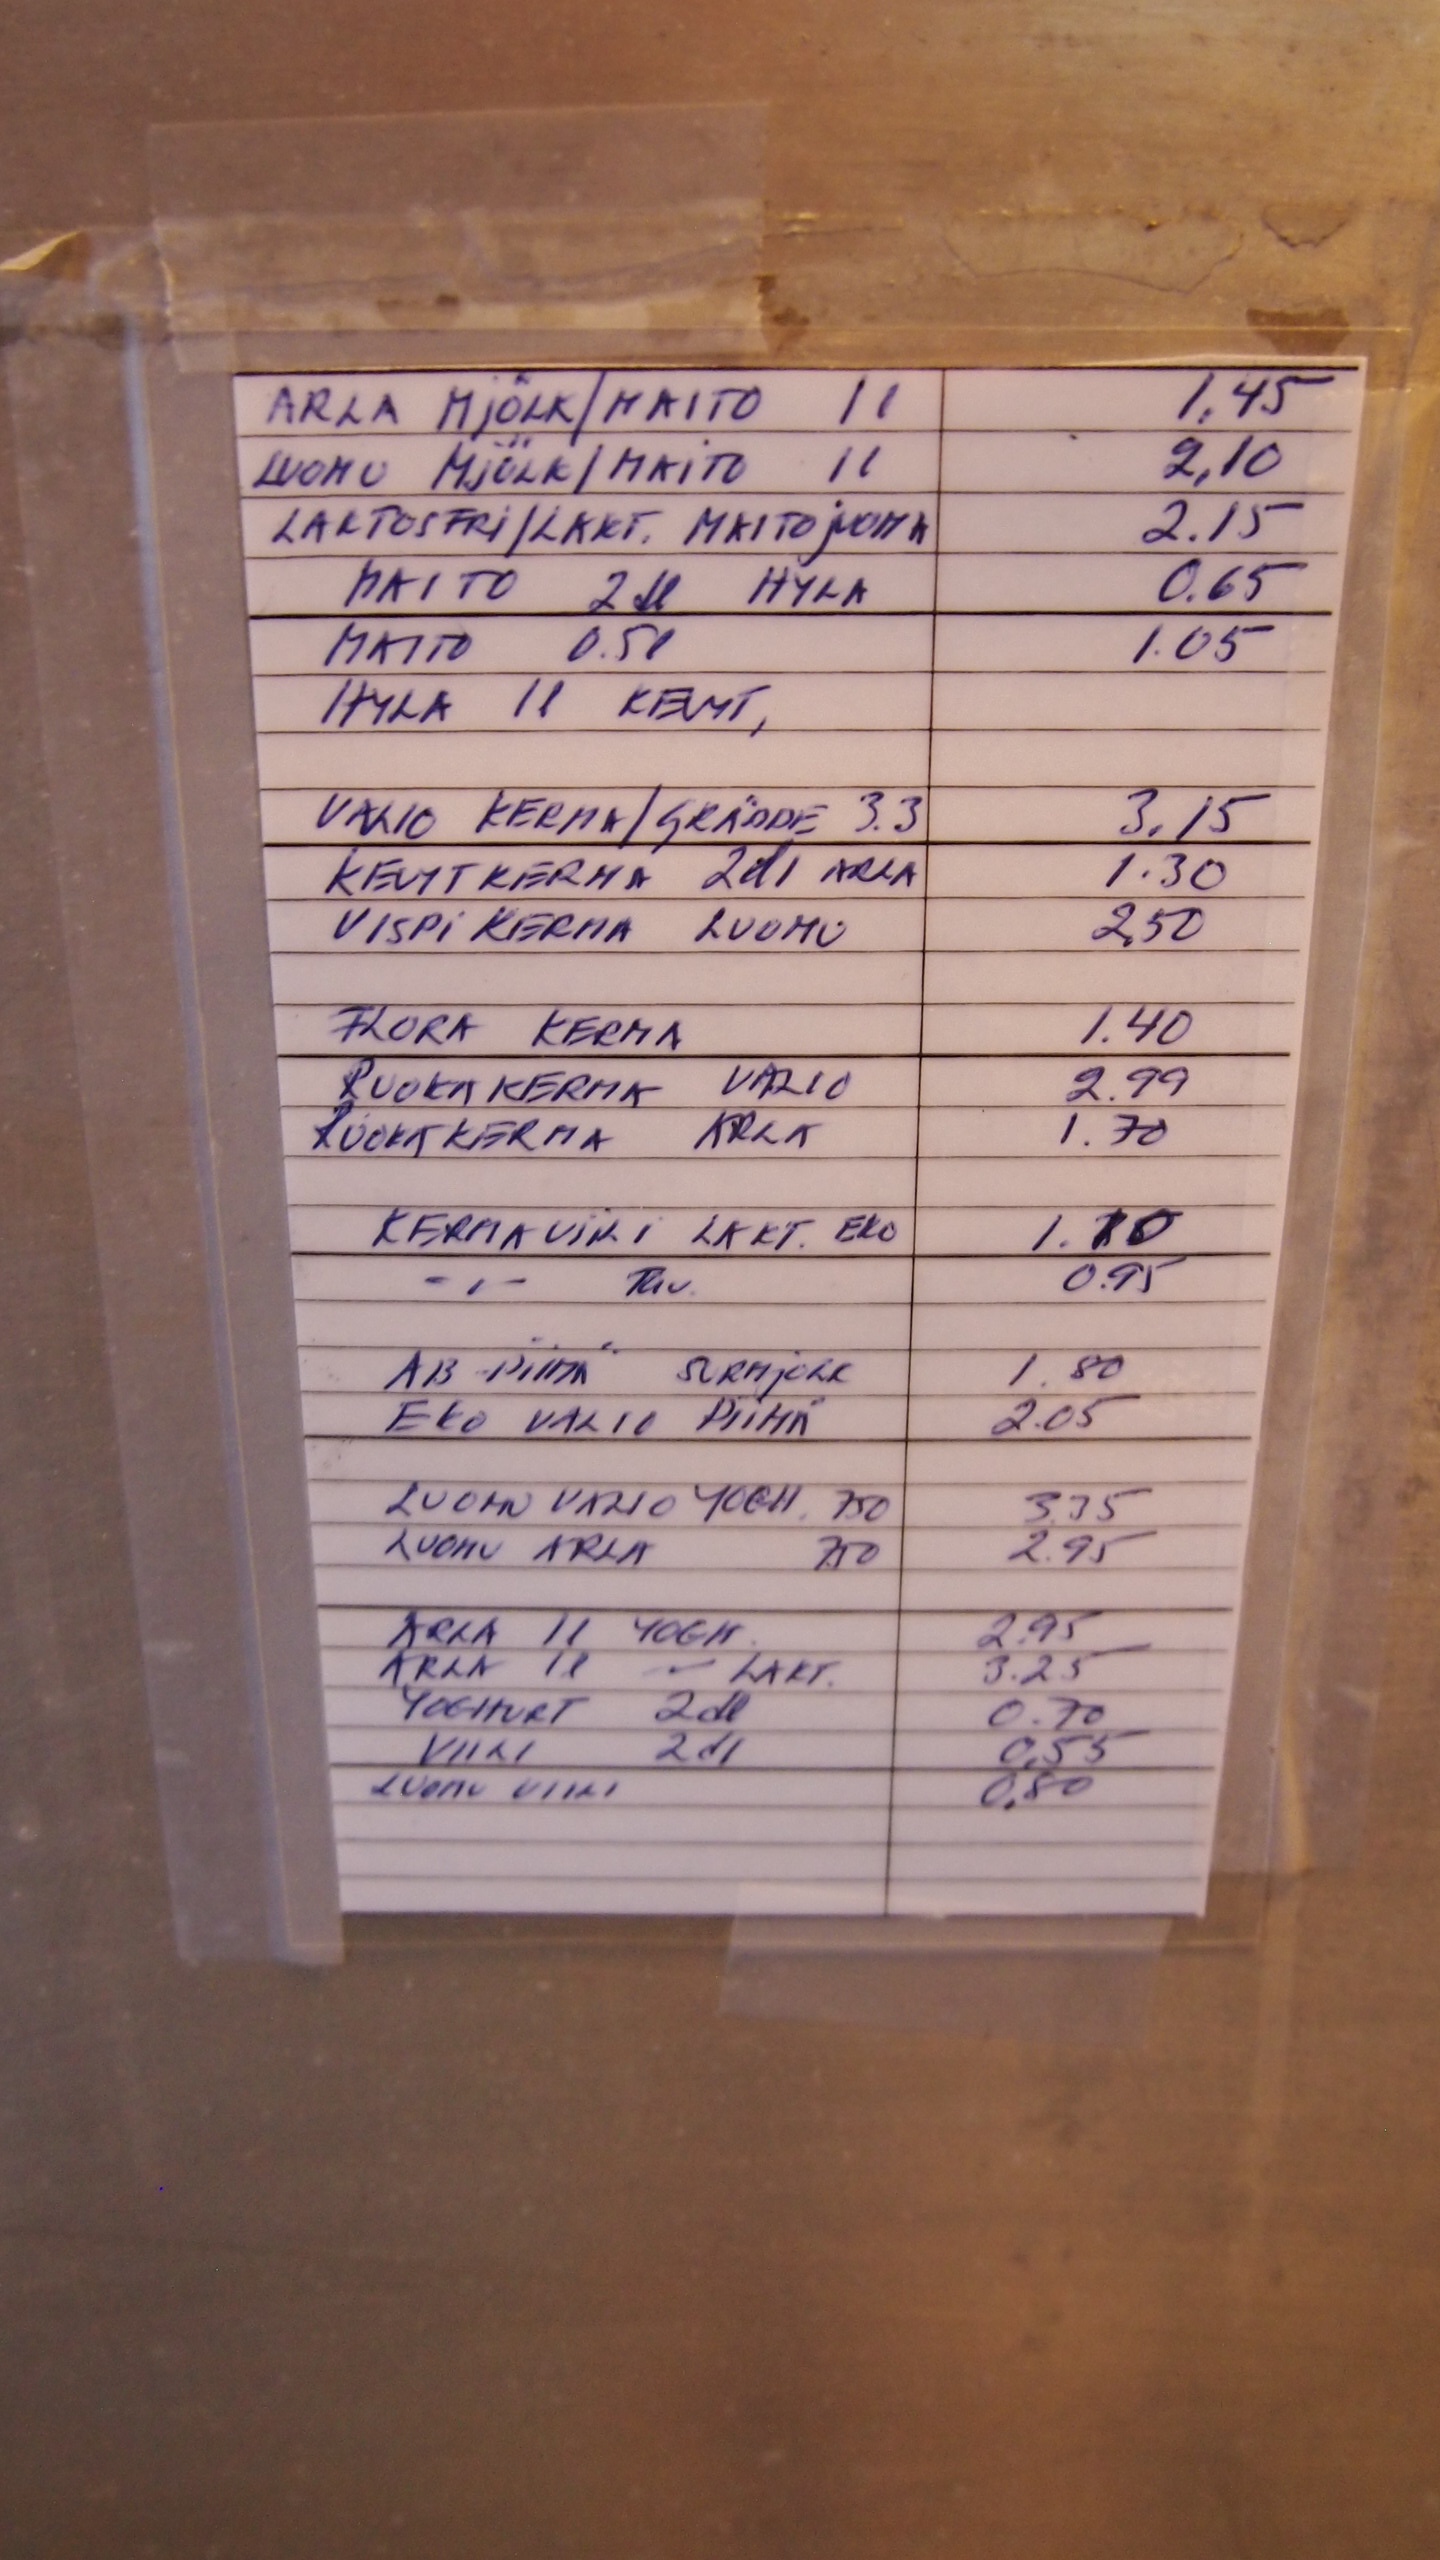 ARLA MJÖLK/MAITO 1l 1.45
LUOMU MJÖLK/MAITO 1l 2,10
LAKTOSFRI/LAKT. MAITOJUOMA 2.15
MAITO 2dl HYLA 0.65
MAITO 0.5l 1.05
HYLA 1l KEVYT,
VALIO KERMA/GRÄDDE 3.3 3,15
KEVYTKERMA 2dl ARLA 1.30
VISPIKERMA LUOMU 2,50
FLORA KERMA 1.40
RUOKAKERMA VALIO 2.99
RUOKAKERMA ARLA 1.70
KERMAVIILI LAKT. EKO 1.10
-"- 0.95
AB-PIIMÄ SURMJÖLK 1.80
EKO VALIO PIIMÄ 2.05
LUOMU VALIO YOGH. 750 3.35
LUOMU ARLA 750 2.95
ARLA 1l YOGH. 2.95
ARLA 1l -"- LAKT. 3.25
YOGHURT 2dl 0.70
VIILI 2dl 0,55
LUOMU VIILI 0,80